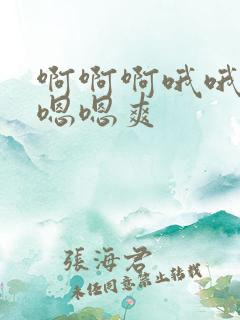 啊啊啊哦哦
嗯嗯爽
張海君
未经同意禁止转载